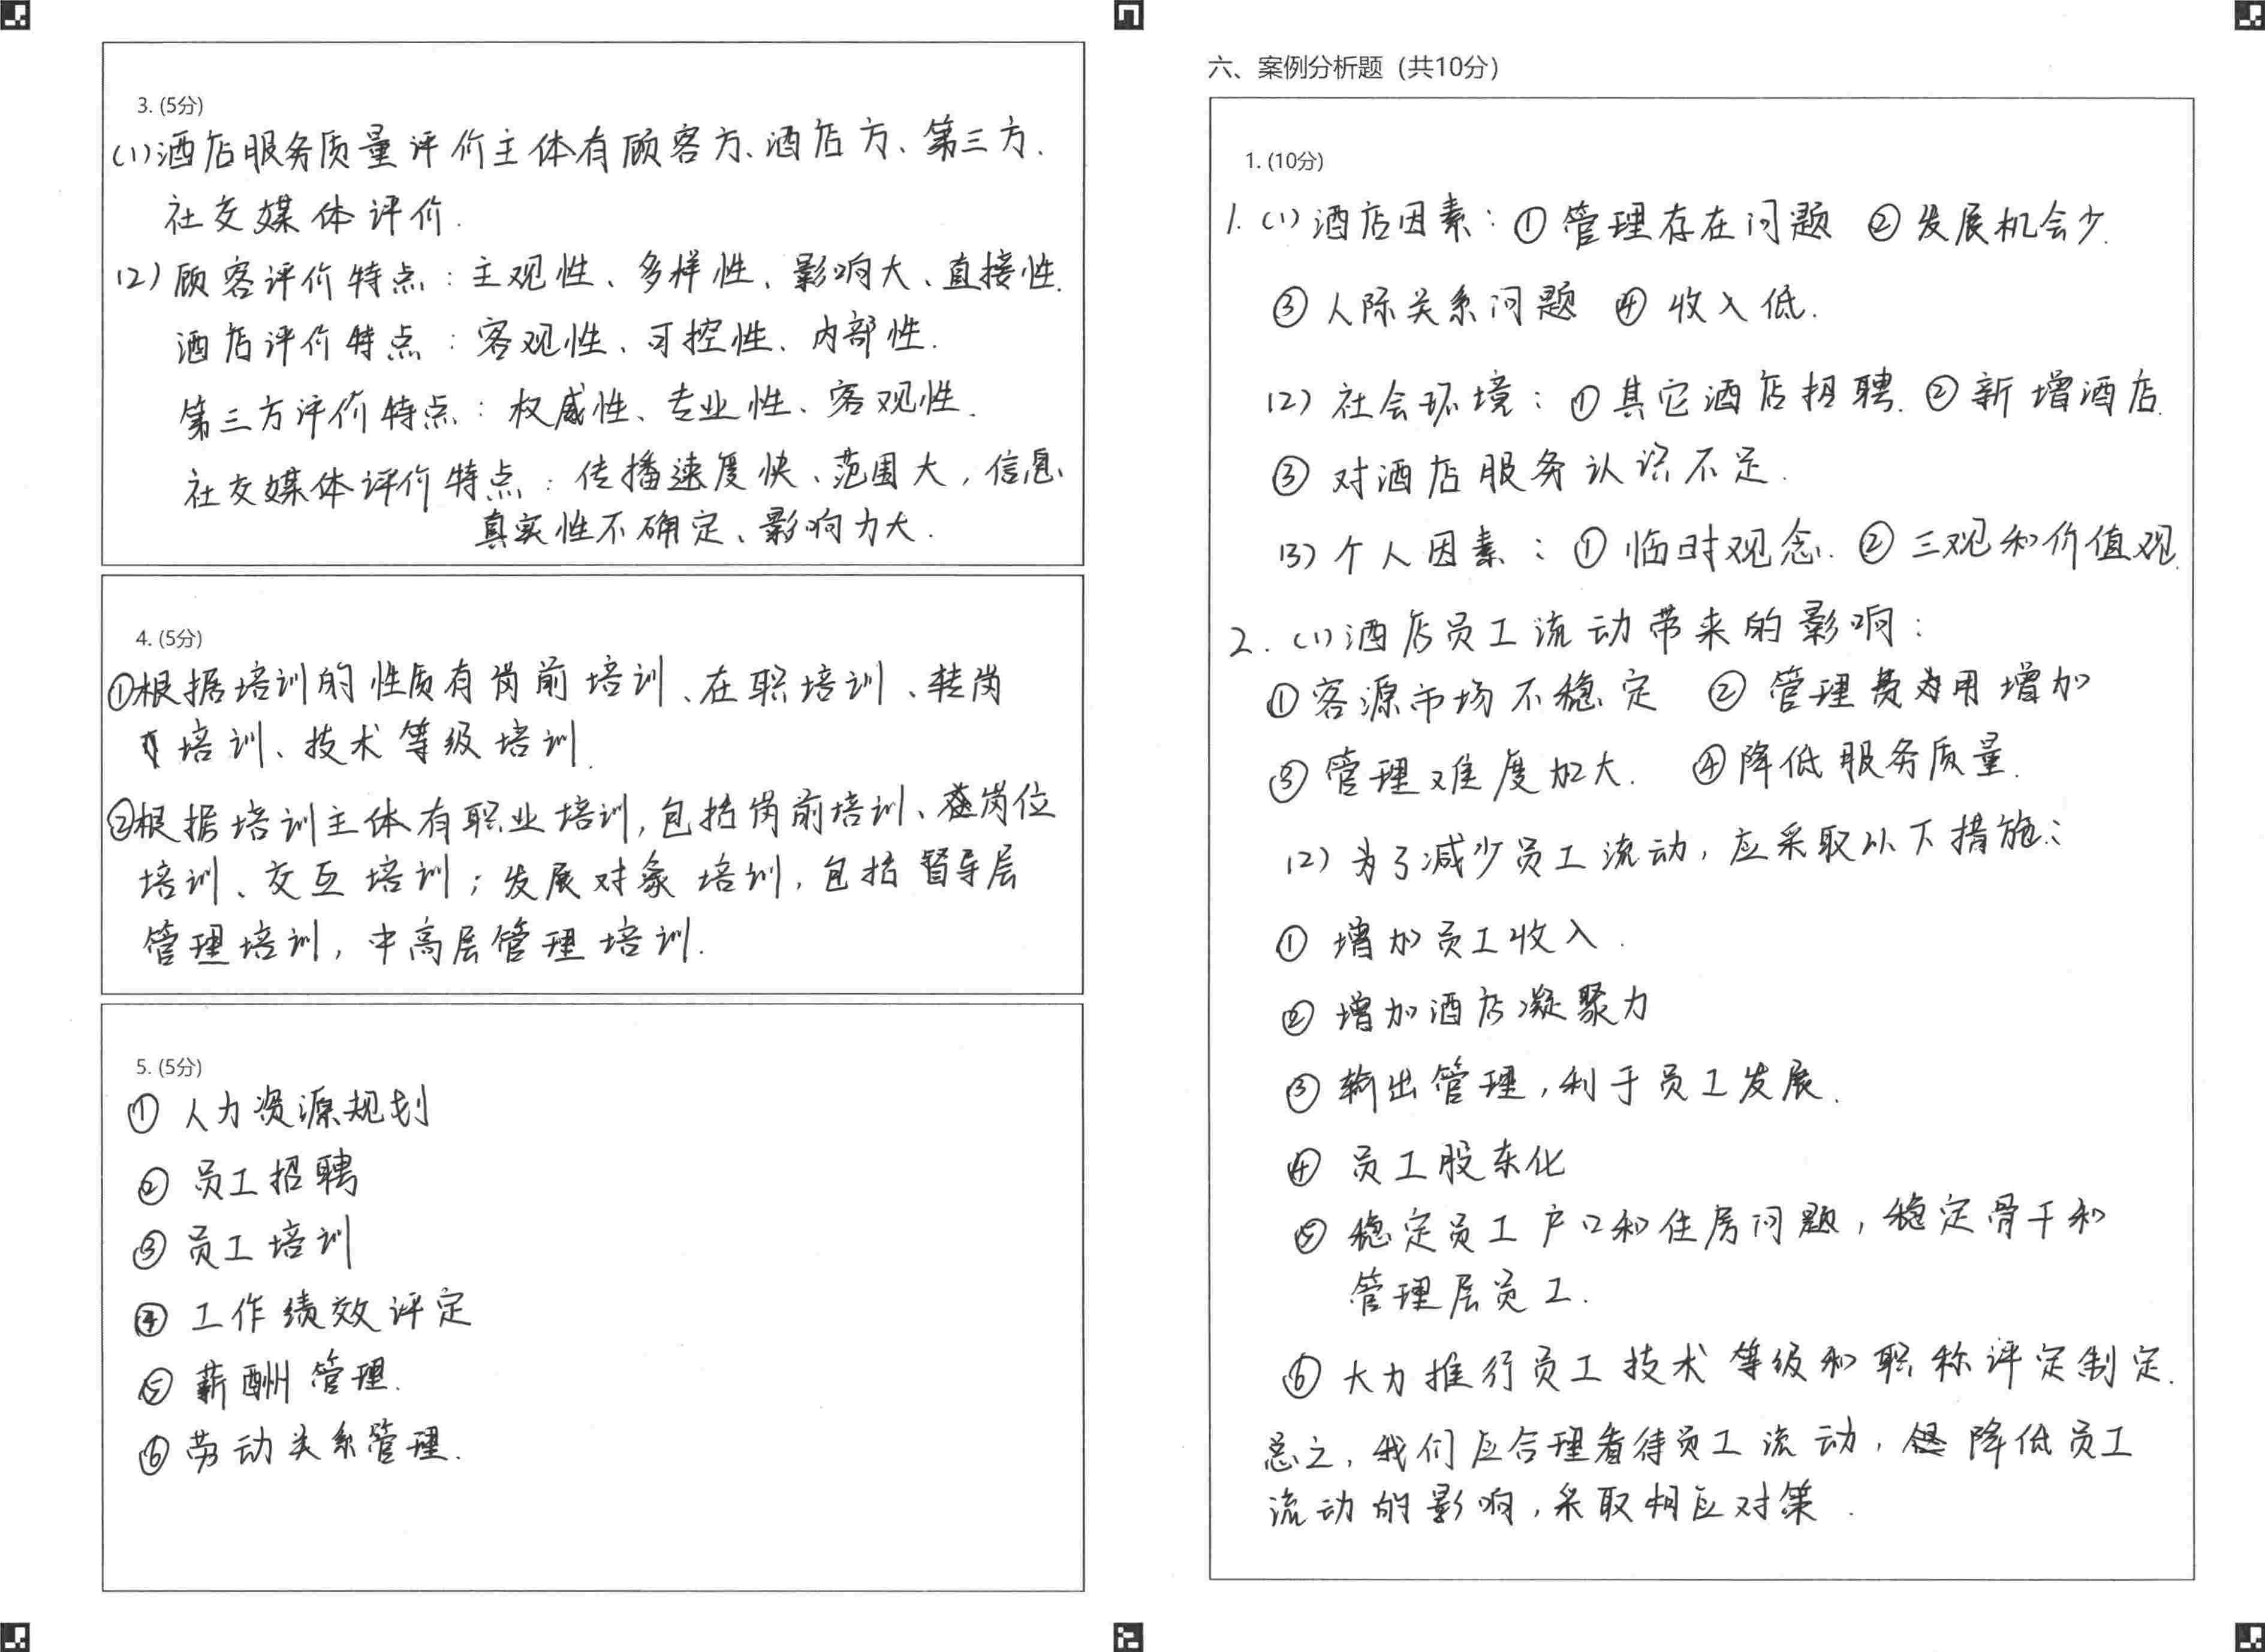 3. (5分)
(1)酒店服务质量评价主体有顾客方、酒店方、第三方.
社交媒体评价.
(2)顾客评价特点：主观性、多样性、影响大、直接性.
酒店评价特点：客观性、可控性、内部性.
第三方评价特点：权威性、专业性、客观性.
社交媒体评价特点：传播速度快、范围大，信息
真实性不确定、影响力大.
4. (5分)
①根据培训的性质有岗前培训、在职培训、转岗
培训、技术等级培训.
②根据培训主体有职业培训，包括岗前培训、岗位
培训、交互培训；发展对象培训，包括督导层
管理培训，中高层管理培训.
5. (5分)
① 人力资源规划
② 员工招聘
③ 员工培训
④ 工作绩效评定
⑤ 薪酬管理.
⑥ 劳动关系管理.
六、案例分析题（共10分）
1. (10分)
1. (1)酒店因素：①管理存在问题 ②发展机会少.
③人际关系问题 ④收入低.
(2)社会环境：①其它酒店招聘. ②新增酒店.
③对酒店服务认识不足.
(3)个人因素：①临时观念. ②三观和价值观.
2. (1)酒店员工流动带来的影响：
①客源市场不稳定 ②管理费用增加
③管理难度加大. ④降低服务质量.
(2)为了减少员工流动，应采取以下措施：
① 增加员工收入.
② 增加酒店凝聚力
③ 输出管理，利于员工发展.
④ 员工股东化
⑤ 稳定员工户口和住房问题，稳定骨干和
管理层员工.
⑥ 大力推行员工技术等级和职称评定制定.
总之，我们应合理看待员工流动，降低员工
流动的影响，采取相应对策.